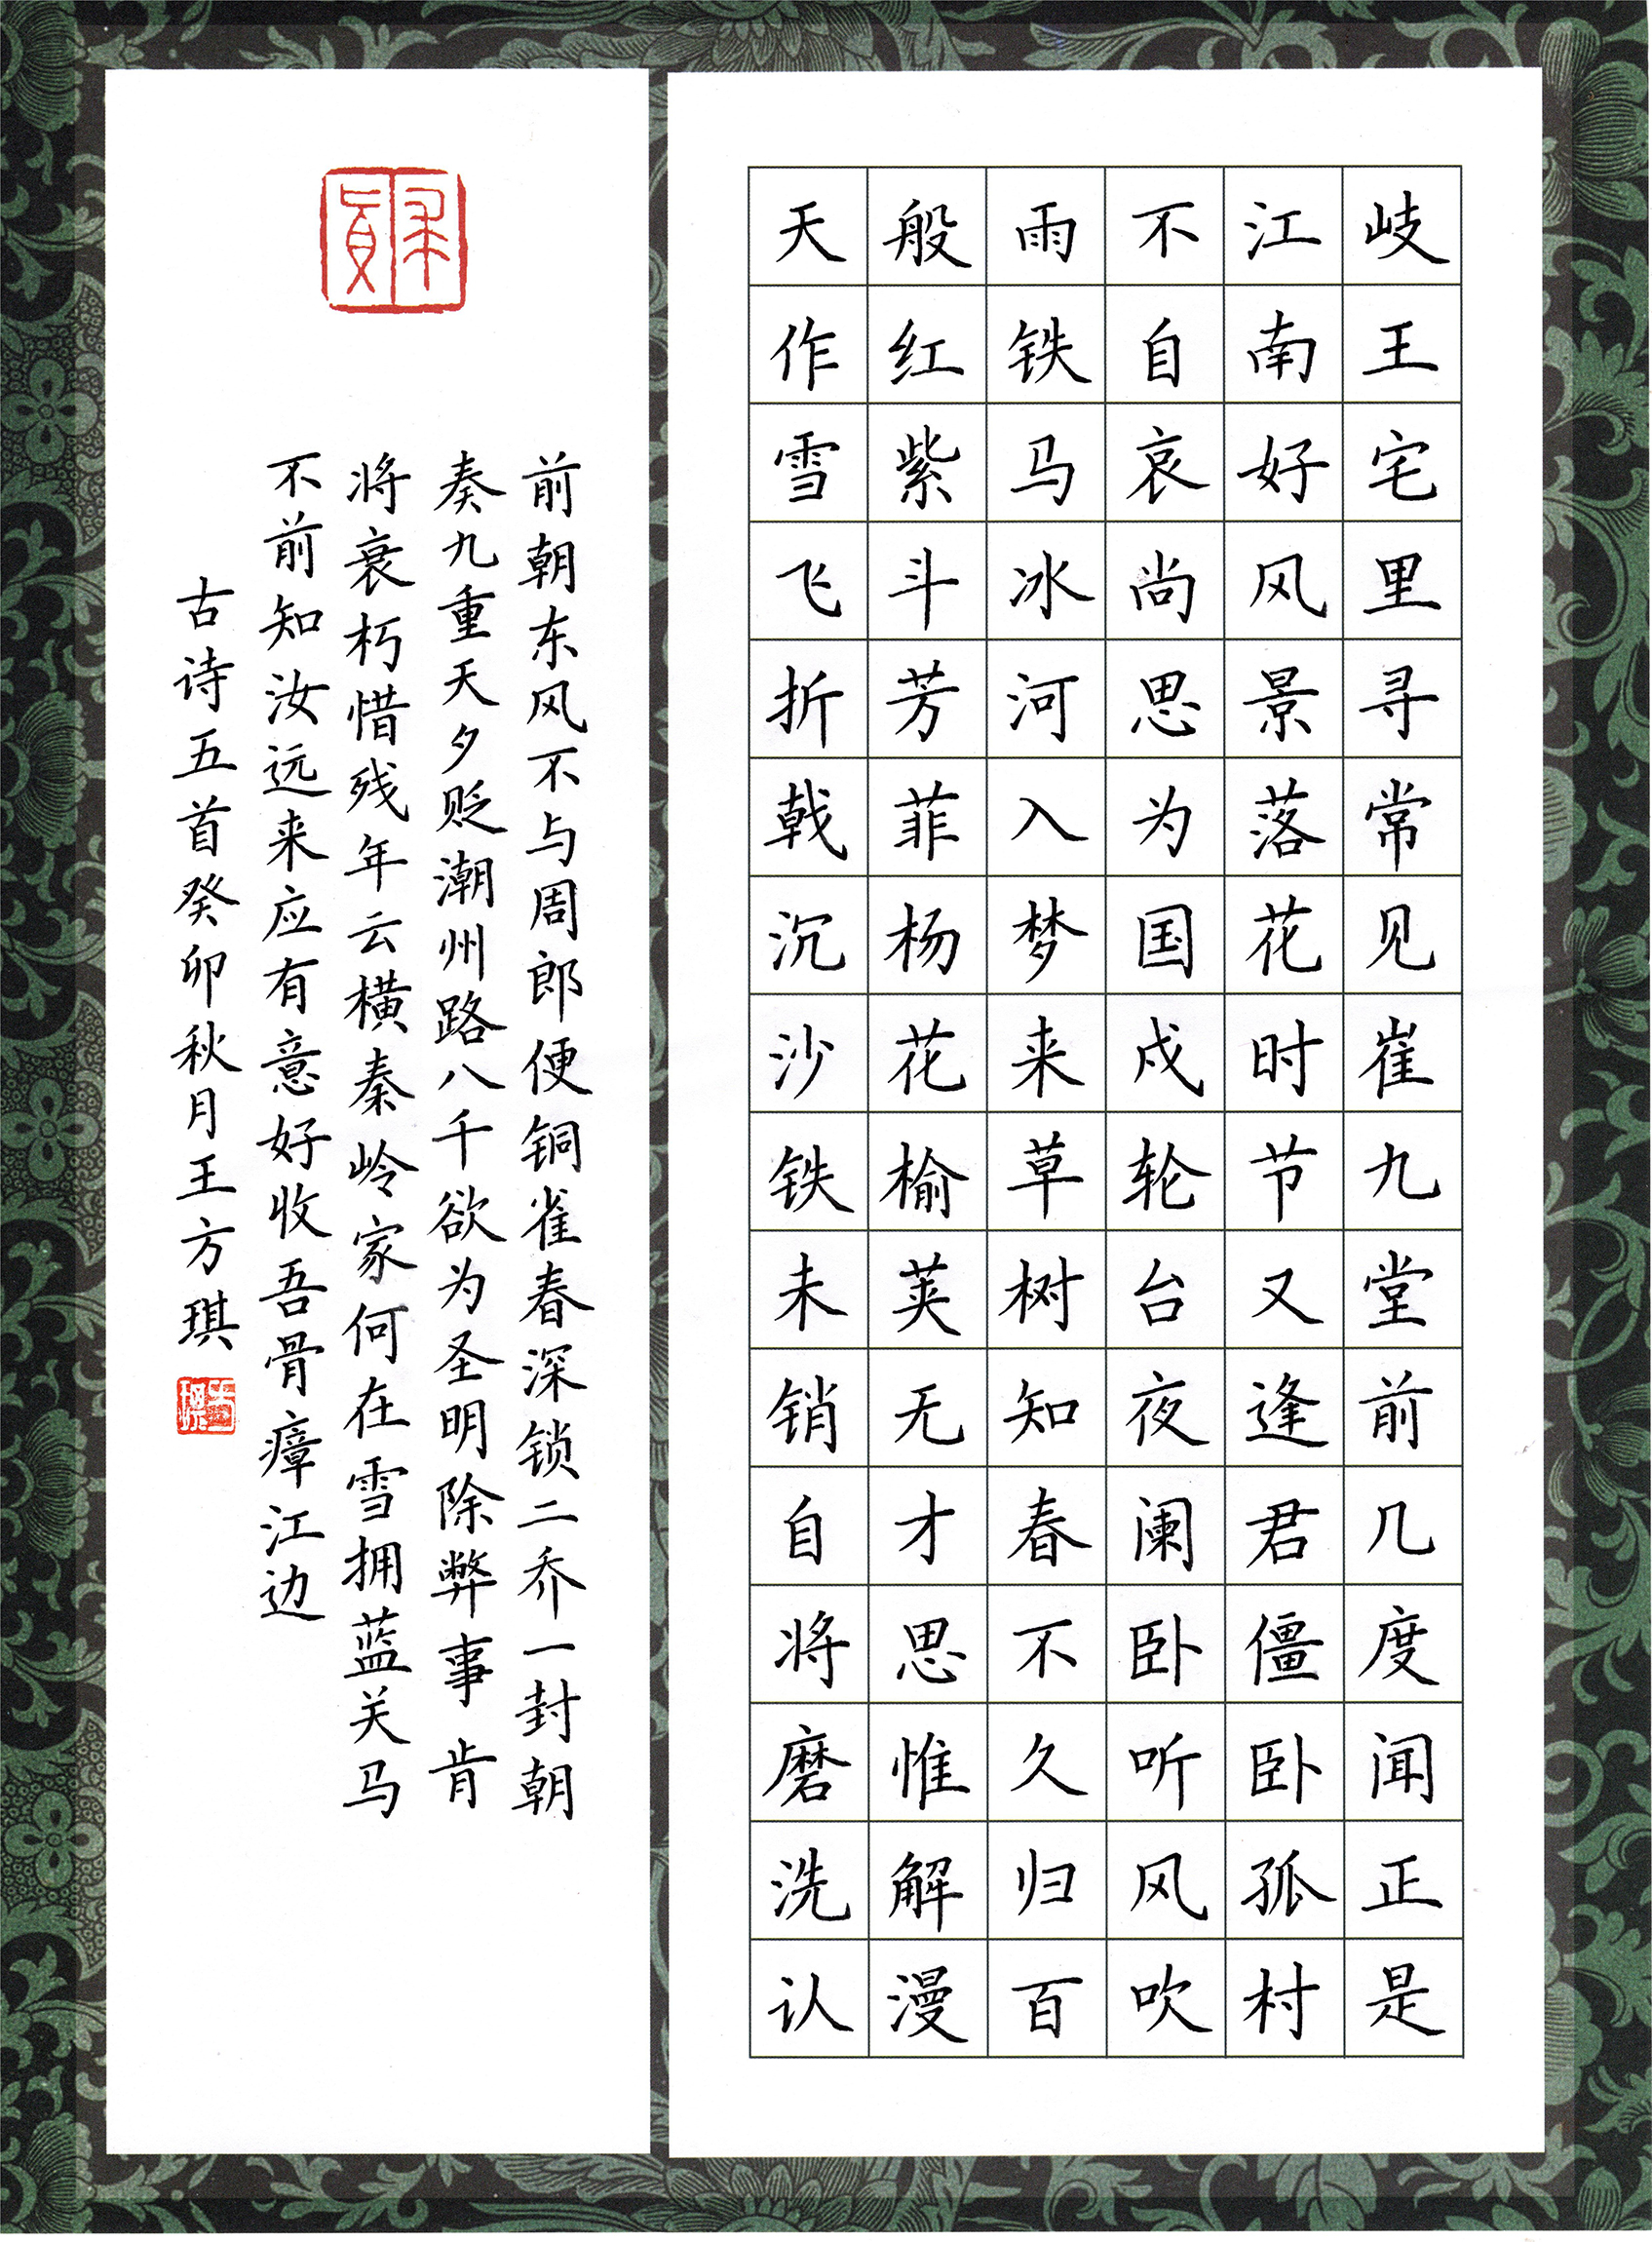 岐王宅里寻常见崔九堂前几度闻正是
江南好风景落花时节又逢君僵卧孤村
不自哀尚思为国戍轮台夜阑卧听风吹
雨铁马冰河入梦来草树知春不久归百
般红紫斗芳菲杨花榆荚无才思惟解漫
天作雪飞折戟沉沙铁未销自将磨洗认
前朝东风不与周郎便铜雀春深锁二乔一封朝
奏九重天夕贬潮州路八千欲为圣明除弊事肯
将衰朽惜残年云横秦岭家何在雪拥蓝关马
不前知汝远来应有意好收吾骨瘴江边
古诗五首癸卯秋月王方琪